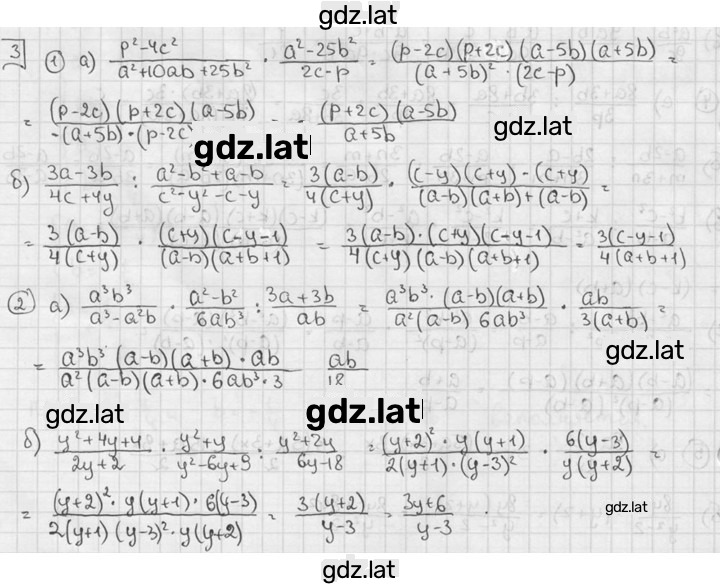 gdz.lat
3 ① а) (p²-4c²)/(a²+10ab+25b²) · (a²-25b²)/(2c-p) = ((p-2c)(p+2c)(a-5b)(a+5b))/((a+5b)²·(2c-p)) =
= ((p-2c)(p+2c)(a-5b))/(-(a+5b)·(p-2c) = - ((p+2c)(a-5b))/(a+5b) gdz.lat
gdz.lat
б) (3a-3b)/(4c+4y) : (a²-b²+a-b)/(c²-y²-c-y) = (3(a-b))/(4(c+y)) · ((c-y)(c+y)-(c+y))/((a-b)(a+b)+(a-b)) =
= (3(a-b))/(4(c+y)) · ((c+y)(c-y-1))/((a-b)(a+b+1)) = (3(a-b)·(c+y)(c-y-1))/(4(c+y)(a-b)(a+b+1)) = (3(c-y-1))/(4(a+b+1))
② а) (a³b³)/(a³-a²b) · (a²-b²)/(6ab³) : (3a+3b)/(ab) = (a³b³·(a-b)(a+b))/(a²(a-b) 6ab³) · (ab)/(3(a+b)) =
gdz.lat
= (a³b³(a-b)(a+b)·ab)/(a²(a-b)(a+b)·6ab³·3 (ab)/(18
gdz.lat gdz.lat
б) (y²+4y+4)/(2y+2) · (y²+y)/(y²-6y+9) : (y²+2y)/(6y-18) = ((y+2)²·y(y+1))/(2(y+1)·(y-3)²) · (6(y-3))/(y(y+2)) =
= ((y+2)²·y(y+1)·6(y-3))/(2(y+1)(y-3)²·y(y+2)) = (3(y+2))/(y-3) = (3y+6)/(y-3) gdz.lat
gdz.lat